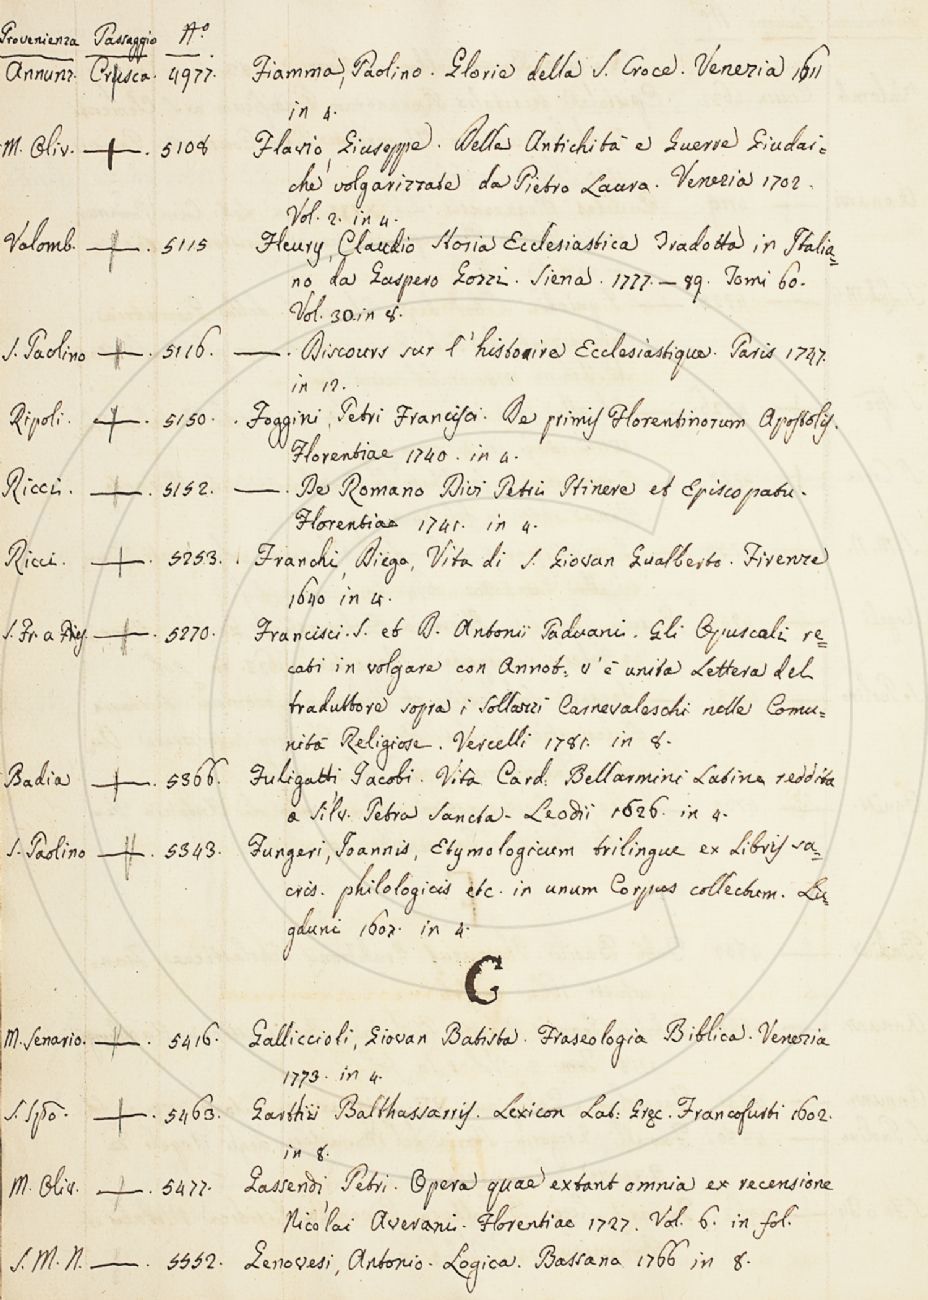 Provenienza Passaggio Nº
Annunz. Crusca. 4977. Fiamma, Paolino. Glorie della S. Croce. Venezia 1611
in 4.
M. Oliv. — . 5108 Flavio, Giuseppe. Delle Antichità e Guerre Giudai=
che volgarizzate da Pietro Laura. Venezia 1702.
Vol. 2. in 4.
Valomb. — . 5115 Fleury, Claudio Storia Ecclesiastica Tradotta in Italia=
no da Gaspero Gozzi. Siena. 1777. — 89. Tomi 60.
Vol. 30. in 8.
S. Paolino — . 5116. — . Discours sur l'histoire Ecclesiastique. Paris 1747.
in 12.
Ripoli. — . 5150. . Foggini, Petri Francisci. De primis Florentinorum Apostolis.
Florentiae 1740. in 4.
Ricci. — . 5152. — . De Romano Divi Petri Itinere et Episcopatu.
Florentiae 1741. in 4.
Ricci. — . 5253. . Franchi, Diego, Vita di S. Giovan Gualberto. Firenze
1640 in 4.
S. Fr. a — . 5270. Francisci. S. et B. Antonii Paduani. Gli Opuscoli re=
cati in volgare con Annot: v'è unita Lettera del
traduttore sopra i Sollazzi Carnevaleschi nelle Comu=
nità Religiose. Vercelli 1781. in 8.
Badia — . 5366. Fuligatti Jacobi. Vita Card. Bellarmini Latine reddita
a Silv. Petra Sancta. Leodii 1626. in 4.
S. Paolino — . 5343. Fungeri, Joannis, Etymologicum trilingue ex Libris sa=
cris. philologicis etc. in unum Corpus collectum. Lu=
gduni 1607. in 4.
G
M. Senario. — . 5416. Galliccioli, Giovan Batista. Fraseologia Biblica. Venezia
1773. in 4.
S. Spo. — . 5463. Garthii Balthassarris. Lexicon Lat: Grec. Francofurti 1602.
in 8.
M. Oliv. — . 5477. Gassendi, Petri. Opera quae extant omnia ex recensione
Nicolai Averani. Florentiae 1727. Vol. 6. in fol.
S. M. N. — . 5552. Genovesi, Antonio. Logica. Bassano 1766 in 8.